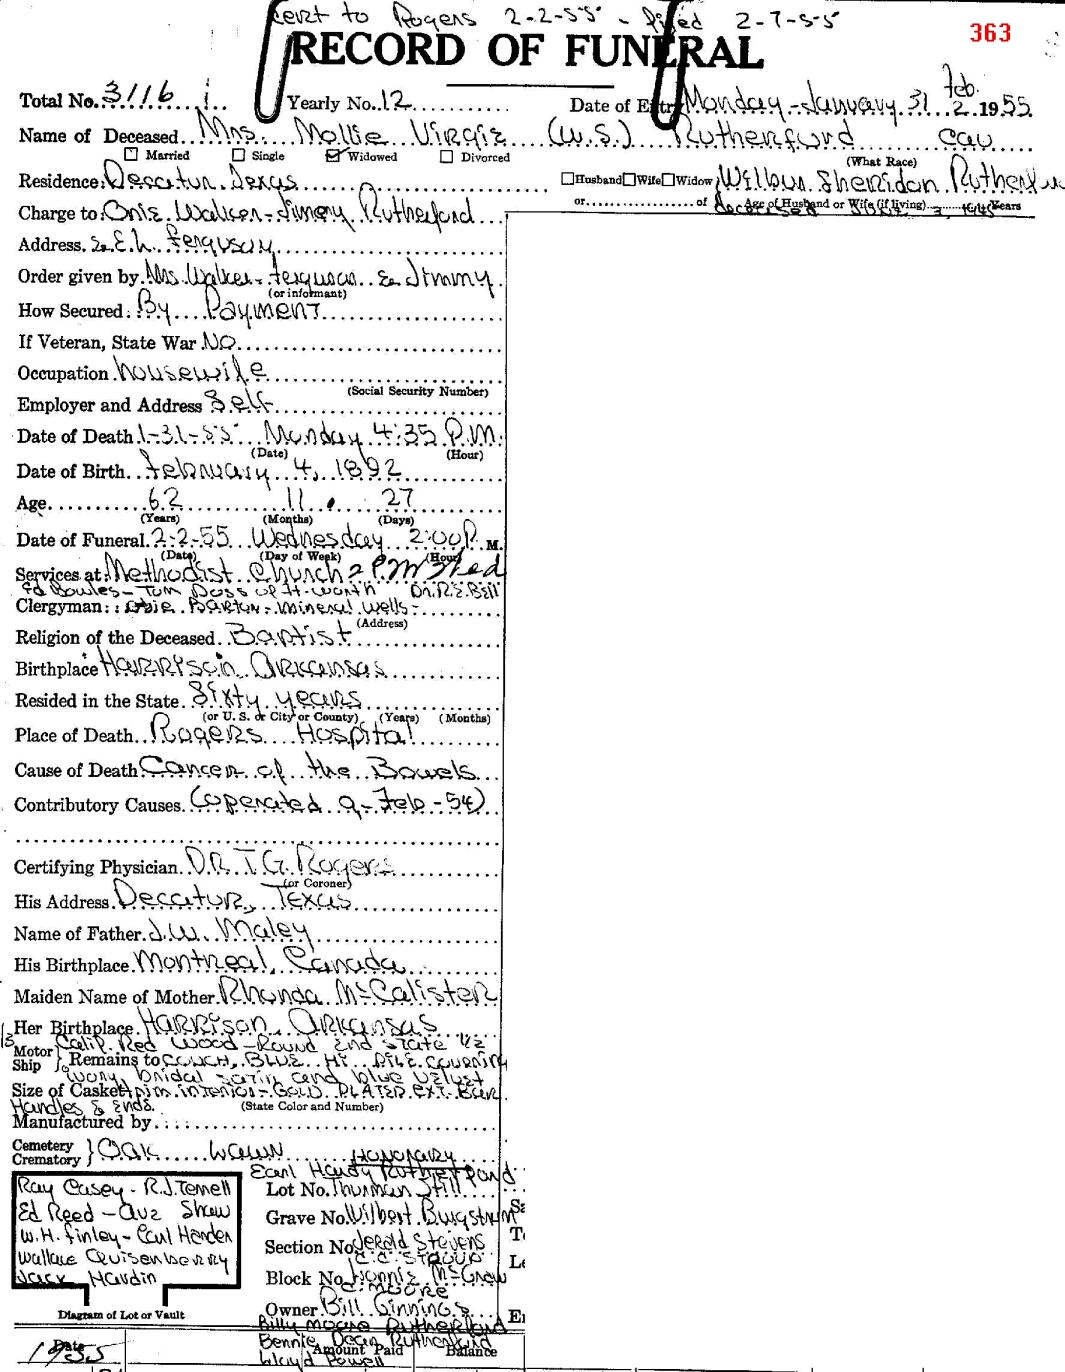 cert to Rogers 2-2-55 - filed 2-7-55
RECORD OF FUNERAL 363
Total No. 3116 Yearly No. 12 Date of Entry Monday - January 31 Feb. 2 1955
Name of Deceased Mrs. Mollie Virgie (W.S.) Rutherford cau
Married Single Widowed Divorced (What Race)
Residence Decatur, Texas Husband Wife Widow Wilbur Sheridan Rutherford
or of deceased Age of Husband or Wife (if living) Years
Charge to Walker - Jimmy Rutherford
Address & E.L. Ferguson
Order given by Mrs. Walker - Ferguson & Jimmy
(or informant)
How Secured By Payment
If Veteran, State War NO
Occupation housewife
(Social Security Number)
Employer and Address Self
Date of Death 1-31-55 Monday 4:35 P.M.
(Date) (Hour)
Date of Birth February 4, 1892
Age 62 11 27
(Years) (Months) (Days)
Date of Funeral 2-2-55 Wednesday 2:00 P. M.
(Date) (Day of Week) (Hour)
Services at Methodist Church 2 PM Wed
Ed Bowles - Tom Doss of Ft. Worth Dr. R.E. Bell
Clergyman: Barton - Mineral Wells -
(Address)
Religion of the Deceased Baptist
Birthplace Harryson, Arkansas
Resided in the State Sixty years
(or U. S. or City or County) (Years) (Months)
Place of Death Rogers Hospital
Cause of Death Cancer of the Bowels
Contributory Causes (operated 9-Feb-54)
Certifying Physician DR. T.G. Rogers
(or Coroner)
His Address Decatur, Texas
Name of Father J.W. Maley
His Birthplace Montreal, Canada
Maiden Name of Mother Rhonda McCalister
Her Birthplace Harrison, Arkansas
Calif. Red Wood - Round End State 1/2
Motor Ship } Remains to couch, Blue Hi Pile covering
Ivory bridal satin and blue velvet
Size of Casket trim interior - Gold plated ext. Bar
Handles & Ends. (State Color and Number)
Manufactured by
Cemetery Crematory } Oak Lawn Honorary
Earl Hardy Rutherford
Ray Casey - R.J. Terrell Lot No. Thurman Still
Ed Reed - Shaw Grave No. Wilbert Burgstrum
W.H. Finley - Carl Harden Section No. Jerald Stevens
Wallace Quisenberry C.C. Stroup
Jack Hardin Block No. McGrew
Moore
Diagram of Lot or Vault Owner Bill Ginnings
Billy Moore Rutherford
Date Bennie Dean Rutherford
1955 Amount Paid Balance
Lloyd Powell